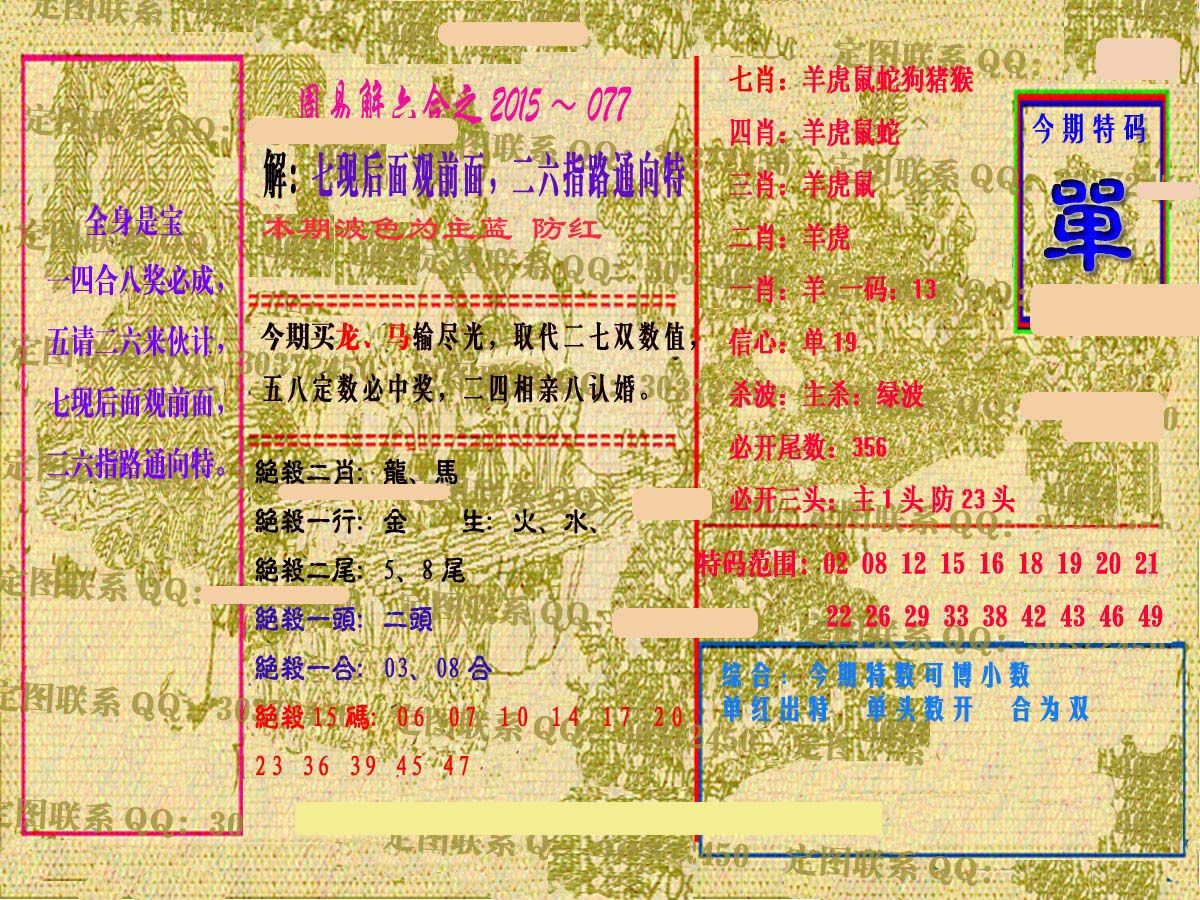 周易解六合之 2015 ~ 077
解：七现后面观前面，二六指路通向特
本期波色为主蓝 防红
全身是宝
一四合八奖必成，
五请二六来伙计，
七现后面观前面，
二六指路通向特。
今期买龙、马输尽光，取代二七双数值，
五八定数必中奖，二四相亲八认婚。
絕殺二肖：龍、馬
絕殺一行：金 生：火、水、
絕殺二尾：5、8 尾
絕殺一頭：二頭
絕殺一合：03、08 合
絕殺 15 碼：06 07 10 14 17 20
23 36 39 45 47
七肖：羊虎鼠蛇狗猪猴
四肖：羊虎鼠蛇
三肖：羊虎鼠
二肖：羊虎
一肖：羊 一码：13
信心：单 19
杀波：主杀：绿波
必开尾数：356
必开三头：主 1 头 防 23 头
今期特码
單
特码范围：02 08 12 15 16 18 19 20 21
22 26 29 33 38 42 43 46 49
综合：今期特数可博小数
单红出特 单头数开 合为双
定图联系 QQ：